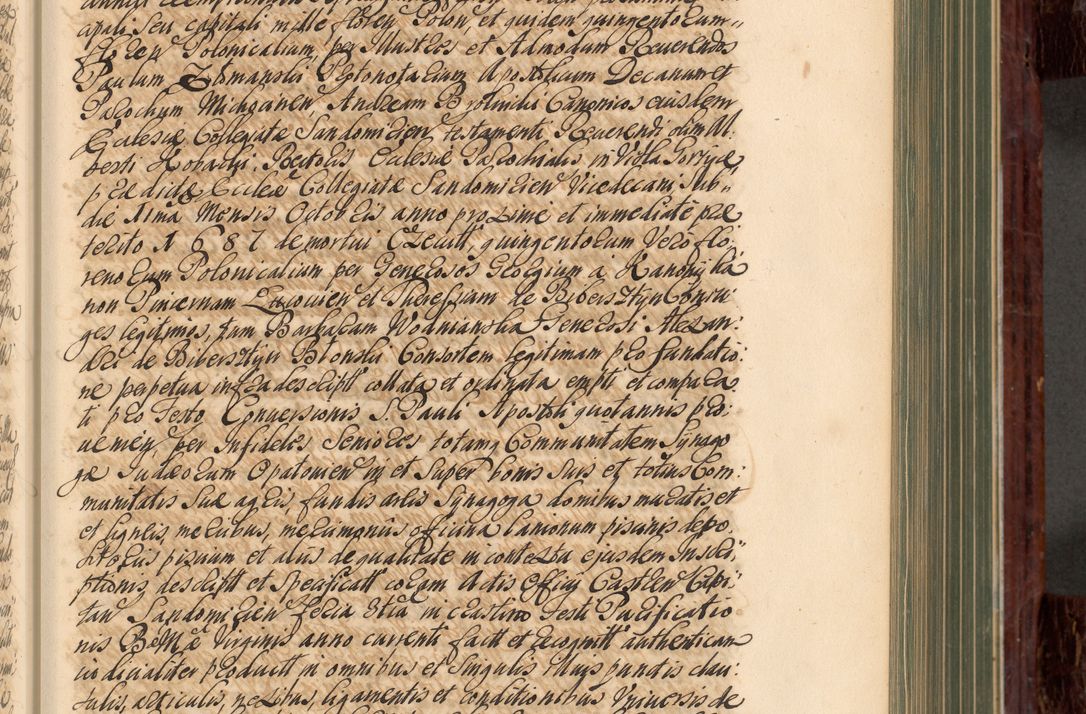 apali seu capitali mille floren Polon, et quidem quingentorum
floren Polonicalium, per Illustres et Admodum Reuerendos
Paulum Protonotarium Apostolicum Decanum et
Parochum Andream Canonicos eiusdem
Ecclesiæ Collegiatæ Sandomirien, testamenti Reuerendi olim Al
berti Rectoris Ecclesiæ Parochialis in Villa
prædictæ Eccleæ Collegiatæ Sandomirien Vicedecani sub
die Mensis Octobris anno proxime et immediatè præ
terito 1687 demortui Execut, quingentorum Vero flo
renorum Polonicalium per Generosos Georgium à
non Pincernam et Theressiam de Bibersztyn Coniu
ges legitimos, tum Barbaram Wodnianska Generosi Alexan:
dri de Bibersztyn Blonski Consortem legitimam pro fundatio:
ne perpetua infradescript collata et ordinata empti et compara
ti pro Festo Conuersionis S. Pauli Apostoli quotannis pro:
uenien, per Infideles Seniores totamq Communitatem Synago
gæ Judæorum Opatouien in et super bonis suis et totius Com:
munitatis suæ agris, fundis areis Synagoga domibus muratis et
et ligneis, mercibus, mercimonijs officina laniorum piscinis repo
sitorijs piscium et alijs de qualitate in contextu eiusdem Inscri
ptionis descript et specificatt coram Actis Officij Castren Capi
tan Sandomirien feria in crastino Festi Purificatio
nis B Mæ Virginis anno currenti fact et recognit authenticam
iudicialiter product in omnibus et singulis suis punctis clau:
sulis, articulis, nexibus, ligamentis et conditionibus Vniuersis de